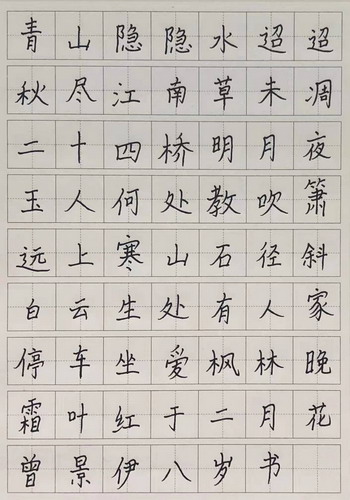 青山隐隐水迢迢
秋尽江南草未凋
二十四桥明月夜
玉人何处教吹箫
远上寒山石径斜
白云生处有人家
停车坐爱枫林晚
霜叶红于二月花
曾景伊八岁书